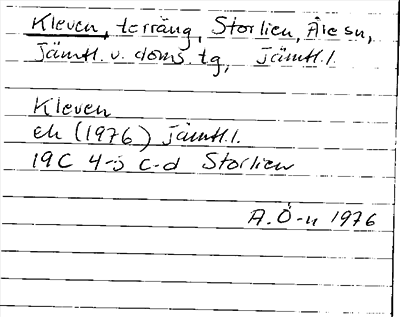 Kleven, terräng, Storlien, Åre sn,
Jämtl. v. doms. tg, Jämtl. l.
Kleven
ek (1976) Jämtl. l.
19C 4-5 c-d Storlien
A. Ö-n 1976